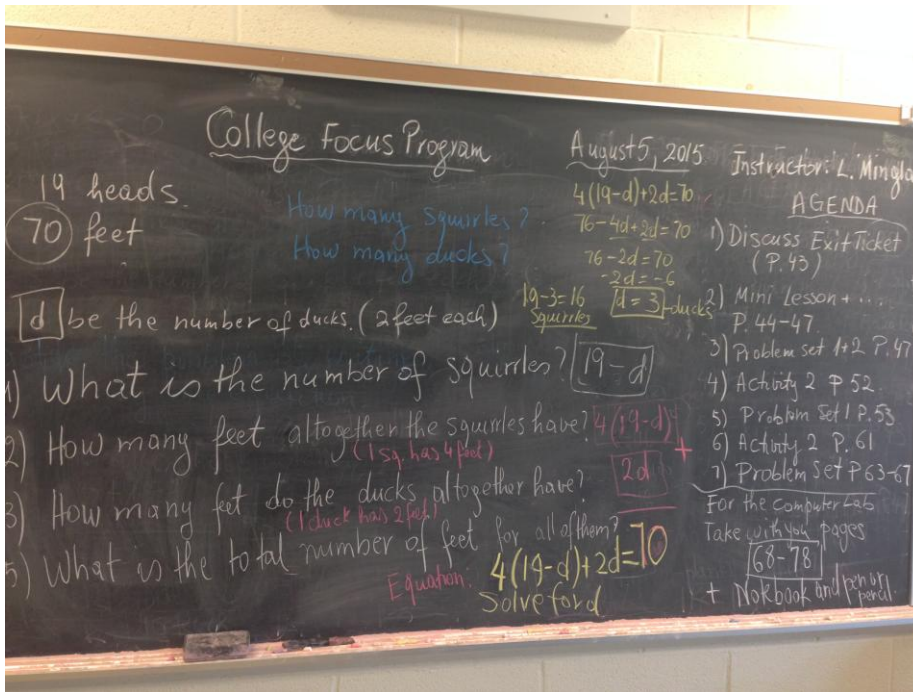 College Focus Program
August 5, 2015
Instructor: L. Mingla
19 heads.
70 feet
How many squirrles?
How many ducks?
d be the number of ducks. (2 feet each)
1) What is the number of squirrles? 19-d
2) How many feet altogether the squirrles have? 4(19-d)
(1 sq. has 4 feet)
+
3) How many feet do the ducks altogether have? 2d
(1 duck has 2 feet)
5) What is the total number of feet for all of them?
Equation. 4(19-d)+2d=70
Solve for d
4(19-d)+2d=70
76-4d+2d=70
76-2d=70
-2d=-6
d=3-ducks
19-3=16
squirrles
AGENDA
1) Discuss Exit Ticket
(P.43)
2) Mini Lesson + ...
P. 44-47.
3) Problem set 1+2 P.47
4) Activity 2 P 52.
5) Problem Set 1 P.53
6) Activity 2 P. 61
7) Problem Set P 63-67
For the Computer Lab
Take with you pages
68-78
+ Notebook and pen or pencil.